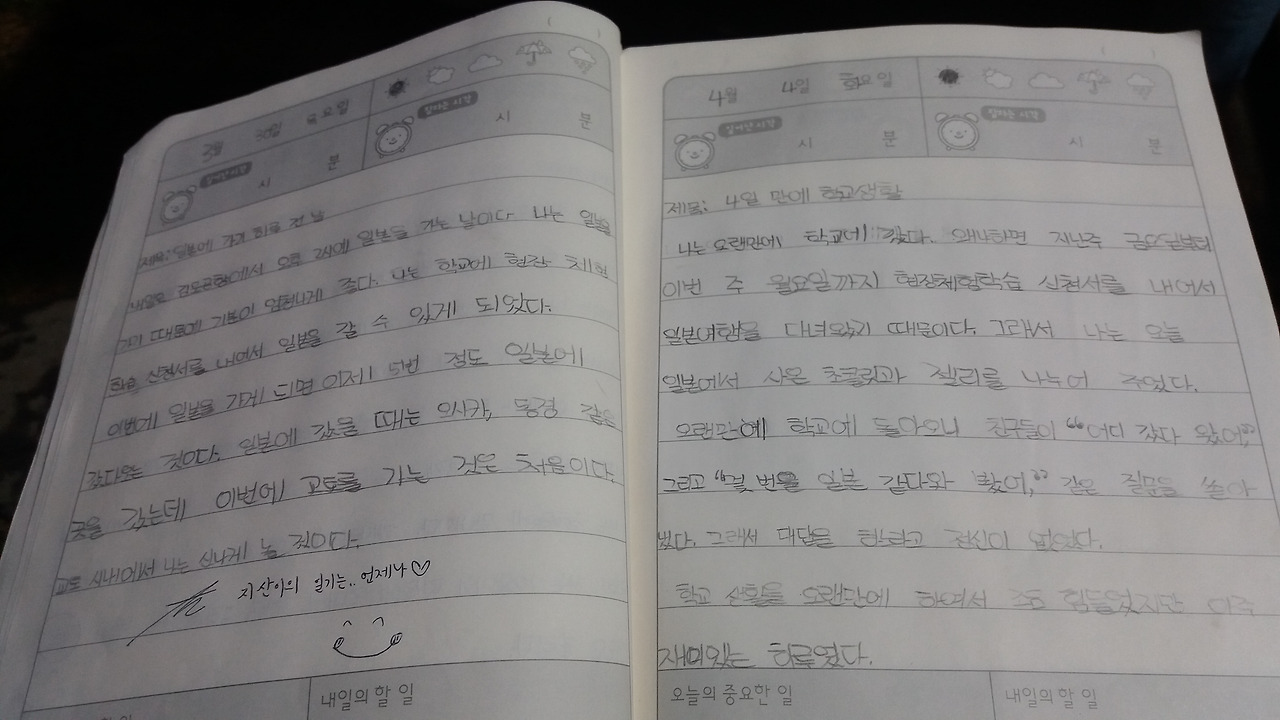 3월 30일 목요일
일어난 시각 시 분
잠자는 시각 시 분
제목: 일본에 가기 하루 전 날
내일은 김포공항에서 오후 2시에 일본을 가는 날이다 나는 일본을
가기 때문에 기분이 엄청나게 좋다. 나는 학교에 현장 체험
학습 신청서를 내어서 일본을 갈 수 있게 되었다.
이번에 일본을 가게 되면 이제 5번 정도 일본에
갔다오는 것이다. 일본에 갔을 때는 오사카, 동경 같은
곳을 갔는데 이번에 교토를 가는 것은 처음이다.
교토 시내에서 나는 신나게 놀 것이다.
지산이의 일기는.. 언제나♡
할 일
내일의 할 일
4월 4일 화요일
일어난 시각 시 분
잠자는 시각 시 분
제목: 4일 만에 학교생활
나는 오랜만에 학교에 갔다. 왜냐하면 지난주 금요일부터
이번 주 월요일까지 현장체험학습 신청서를 내어서
일본여행을 다녀왔기 때문이다. 그래서 나는 오늘
일본에서 사온 초콜릿과 젤리를 나누어 주었다.
오랜만에 학교에 돌아오니 친구들이 "어디 갔다 왔어,"
그리고 "몇 번을 일본 갔다와 봤어," 같은 질문을 쏟아
냈다. 그래서 대답을 하느라고 정신이 없었다.
학교 생활을 오랜만에 하여서 조금 힘들었지만 아주
재미있는 하루였다.
오늘의 중요한 일
내일의 할 일